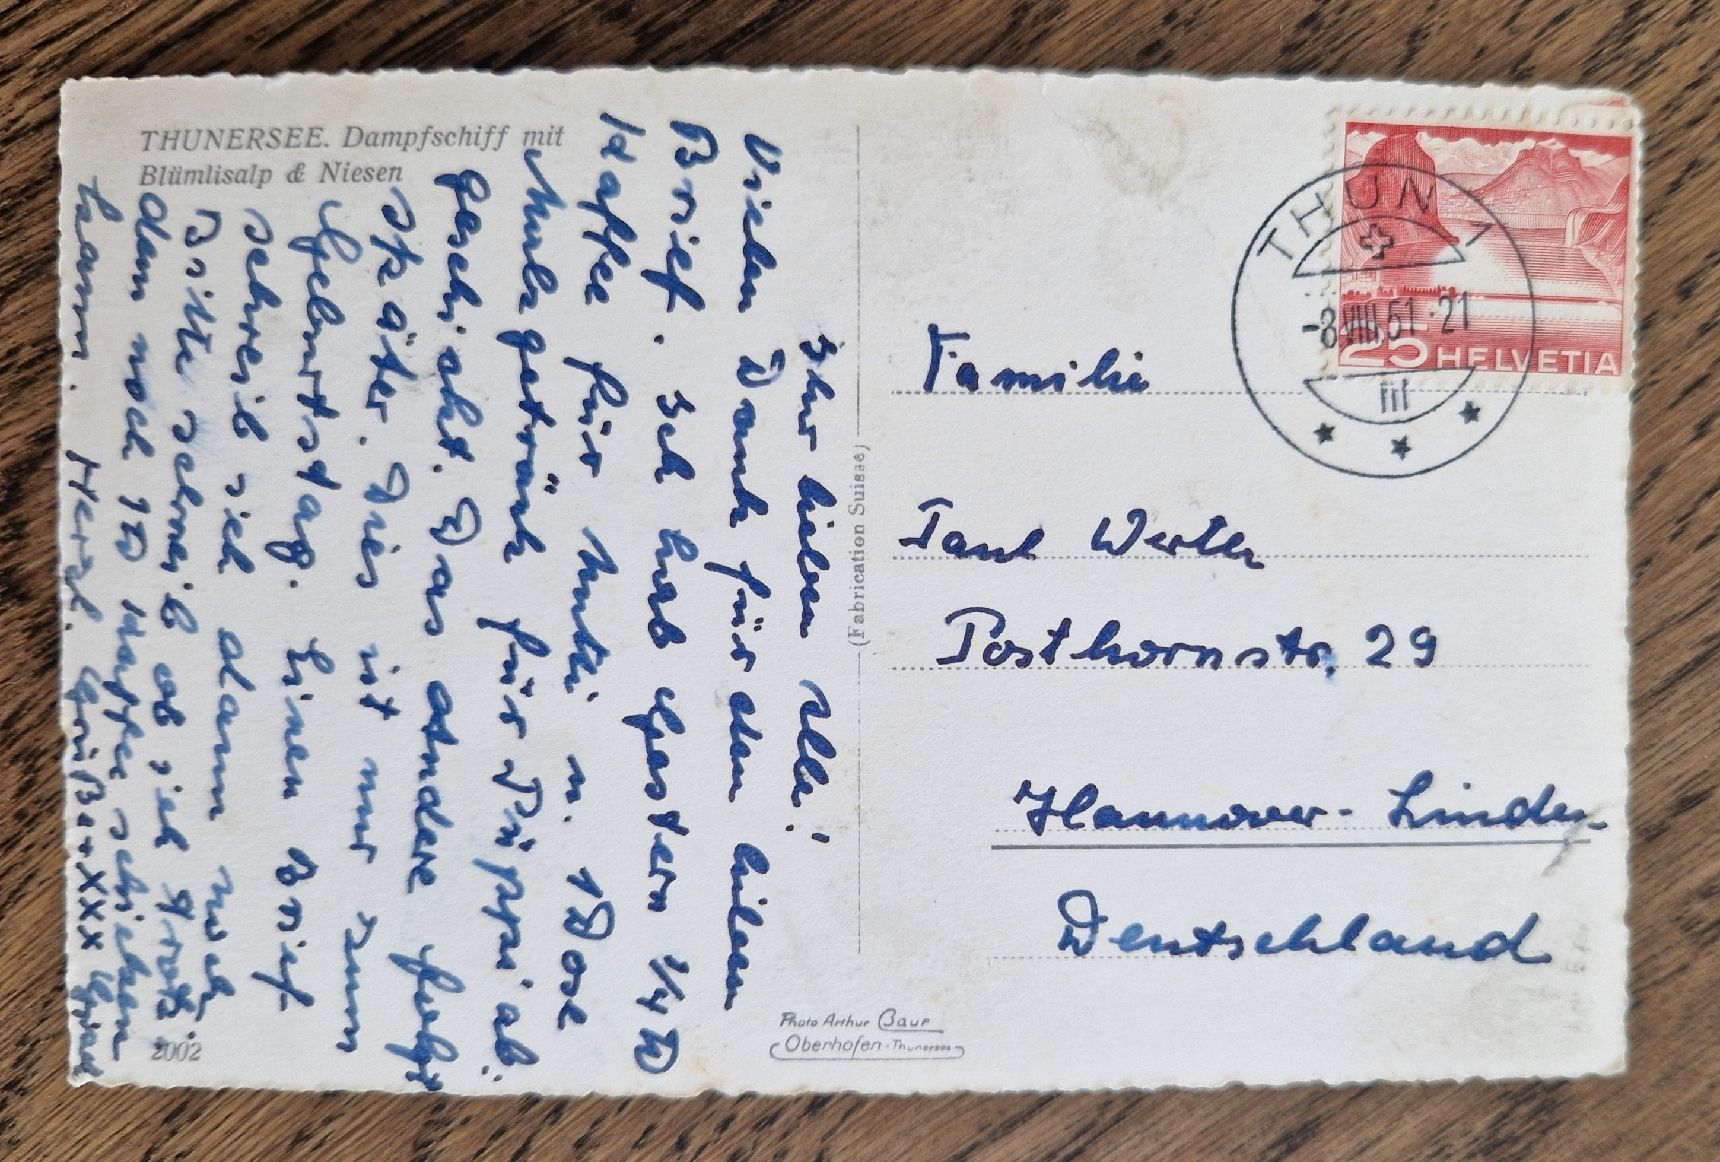 THUNERSEE. Dampfschiff mit
Blümlisalp & Niesen
Ihr lieben Alle!
Vielen Dank für den lieben
Brief. Ich hab gestern 1/4 ℔
Kaffee für Mutti u. 1 Dose
Malzgetränk für Püppi ab-
geschickt. Das andere folgt
später. Dies ist nur zum
Geburtstag. Einen Brief
schreib ich dann noch.
Bitte schreib ob ich Trotz-
dem noch 1 ℔ Kaffee schicken
kann. Herzl. Grüße XXX
2002
(Fabrication Suisse)
Photo Arthur Baur
Oberhofen-Thunersee
THUN 1
-8.VIII.51-21
III
25 HELVETIA
Familie
Paul Werth
Posthornstr. 29
Hannover-Linden
Deutschland